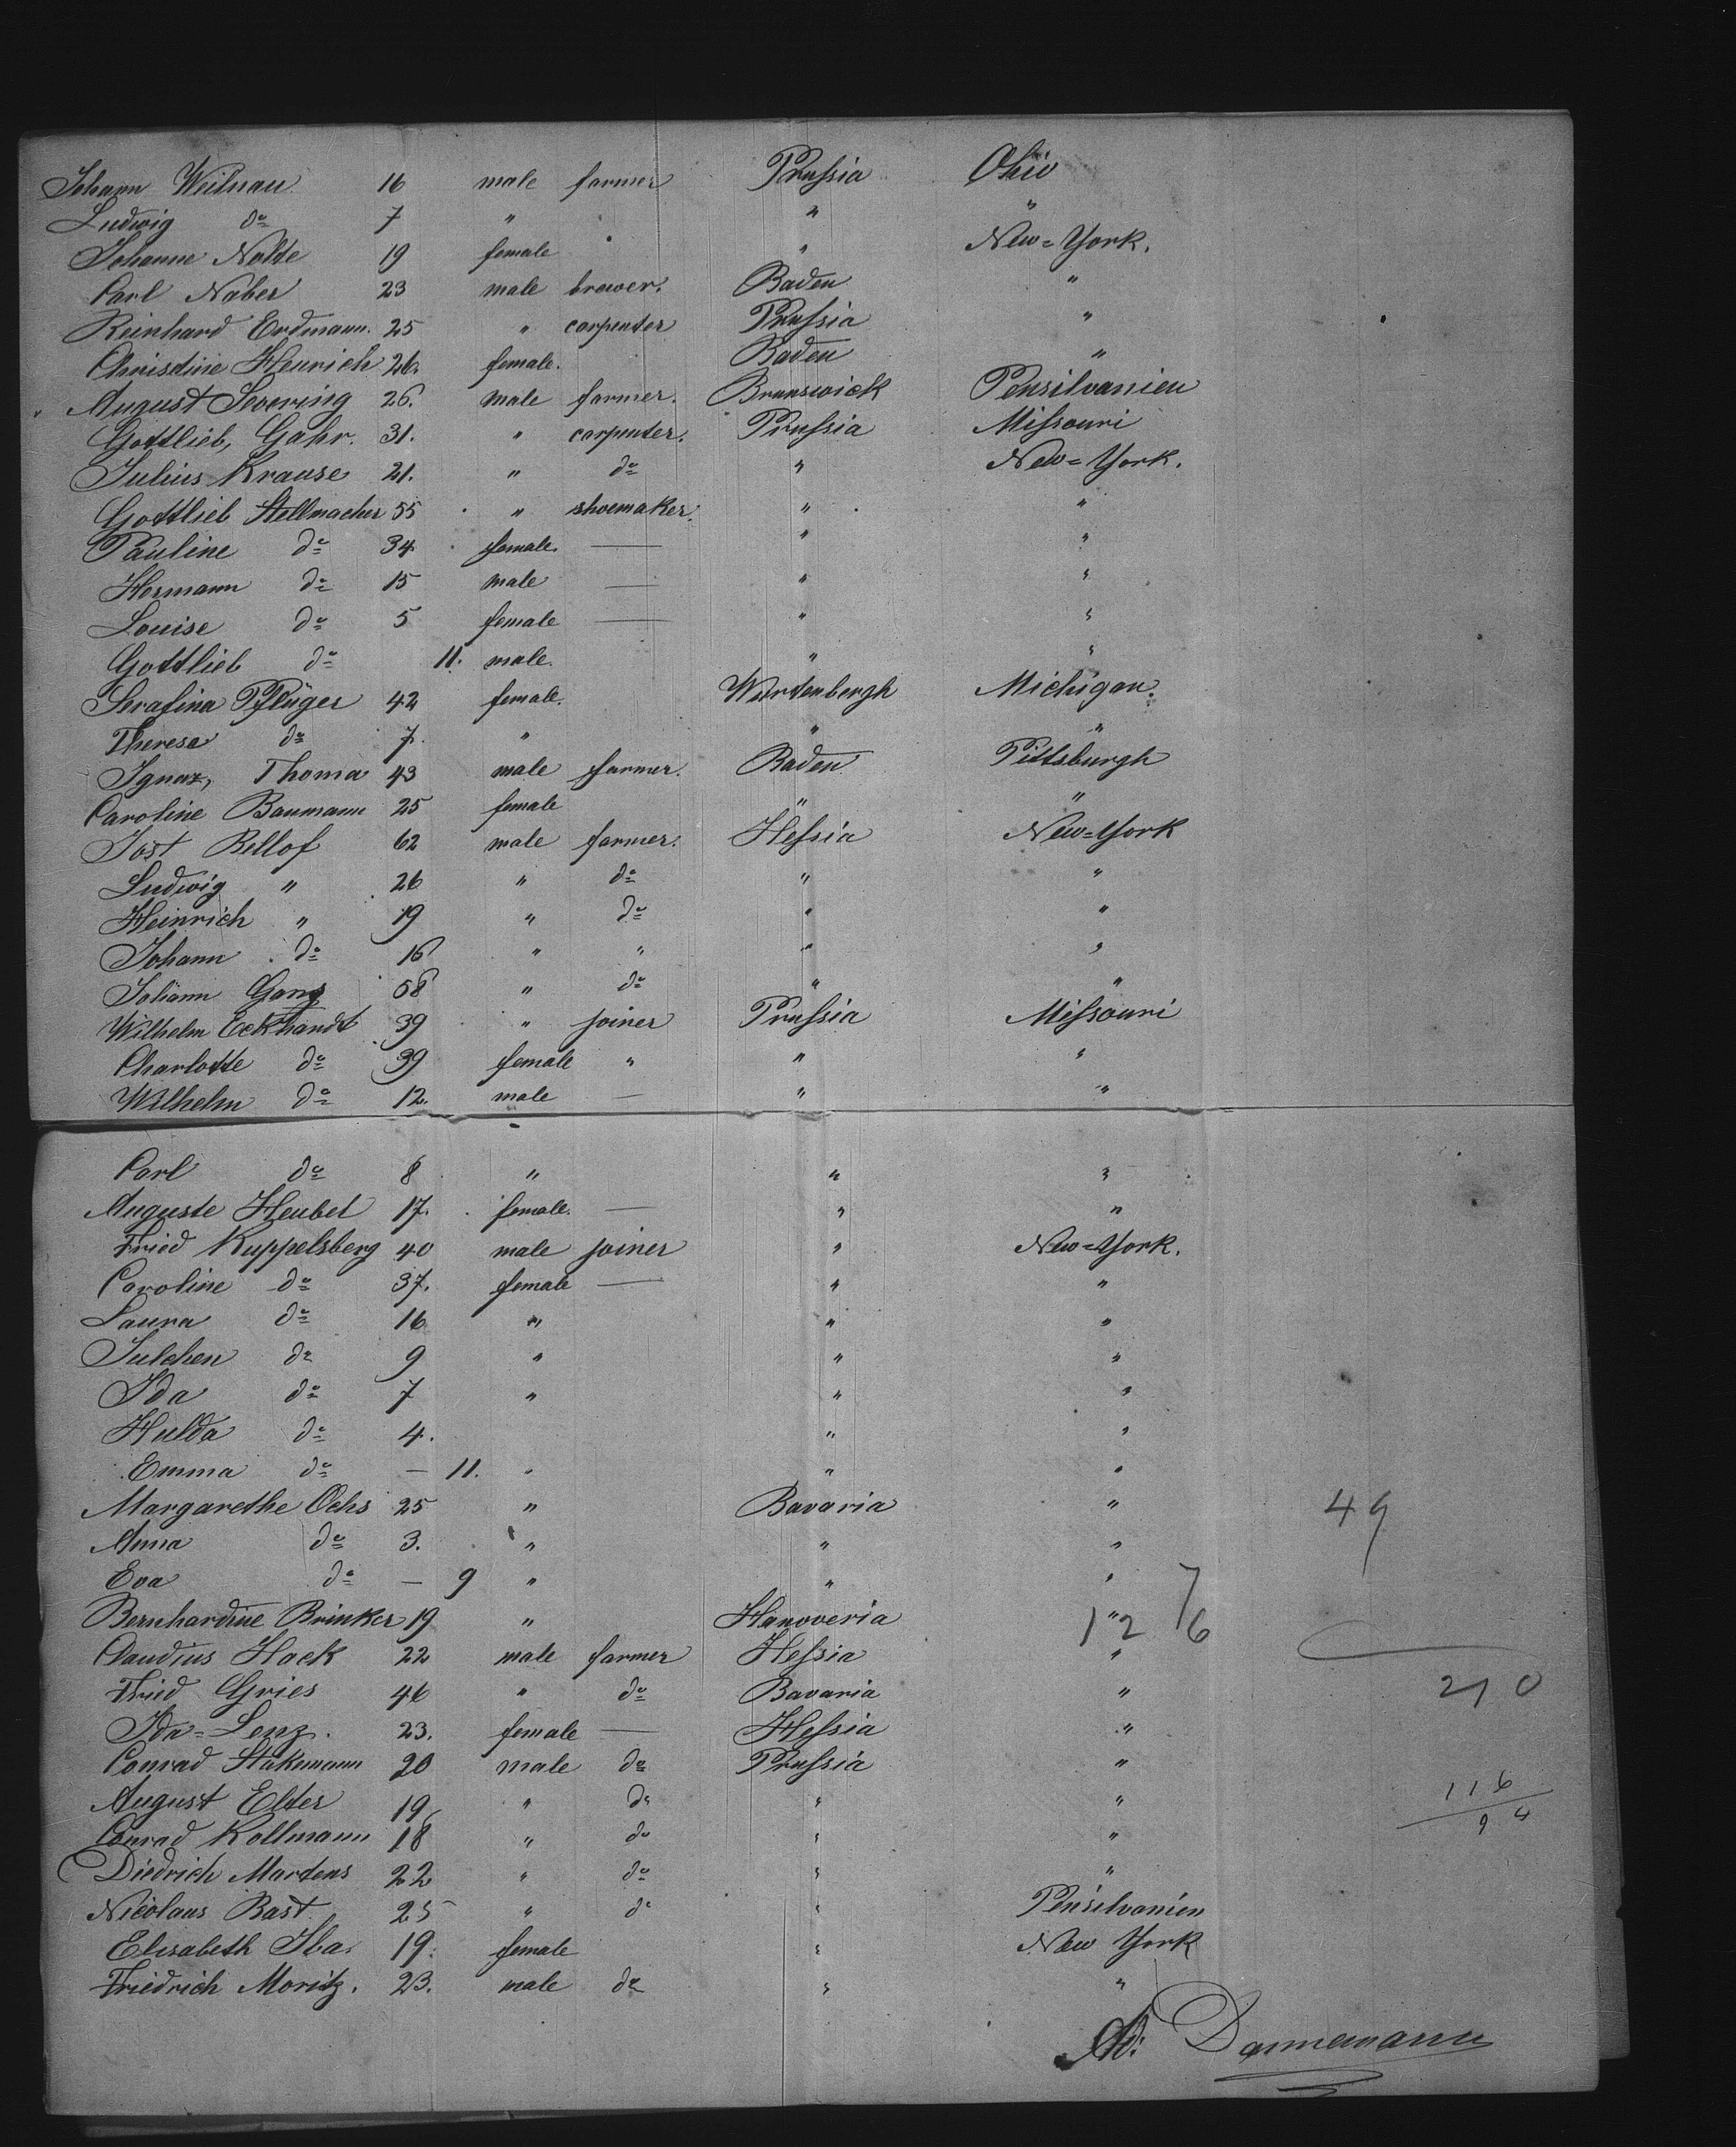 Johann Weilnau 16 male farmer Prussia Ohio
Ludwig do 7 " " "
Johanne Nolte 19 female " New-York.
Carl Naber 23 male brewer. Baden "
Reinhard Erdmann. 25 " carpenter Prussia "
Christine Heurich 26. female. Baden "
August Severing 26. male farmer. Brunswick Pensilvanien
Gottlieb, Gahr. 31. " carpenter. Prussia Missouri
Julius Krause 21. " do " New-York.
Gottlieb Stellmacher 55 " shoemaker. " "
Pauline do 34 female. — " "
Hermann do 15 male — " "
Louise do 5 female — " "
Gottlieb do 11. male. " "
Serafina Pflüger 42 female. Würtenbergh Michigan.
Therese do 7. " " "
Ignaz, Thoma 43 male farmer. Baden Pittsburgh
Caroline Baumann 25 female " "
Jost Bellof 62 male farmer. Hessia New-York
Ludwig " 26 " do " "
Heinrich " 19 " do " "
Johann do 16 " " " "
Johann Gans 58 " do " "
Wilhelm Eckhardt 39 " joiner Prussia Missouri
Charlotte do 39 female " " "
Wilhelm do 12. male — " "
Carl do 8 " " "
Auguste Heubel 17. female. — " "
Fried Kuppelsberg 40 male joiner " New-York.
Caroline do 37. female — " "
Laura do 16 " " "
Julchen do 9 " " "
Ida do 7 " " "
Hulda do 4. " "
Emma do — 11. " " "
Margarethe Ochs 25 " Bavaria " 49
Anna do 3. " " "
Eva do — 9 " " "
Bernhardine Brinker 19 " Hanoveria " 12 76
Claudius Hack 22 male farmer Hessia "
Fried Gries 46 " do Bavaria " 210
Ida-Lenz. 23. female — Hessia "
Conrad Stükmann 20 male do Prussia "
August Elter 19 " do " " 116
Conrad Kollmann 18 " do " " 94
Diedrich Martens 22 " do " "
Nicolaus Bast 25 " do " Pensilvanien
Elisabeth Iba. 19. female " New York
Friedrich Moritz. 23. male do " "
Ad: Dannemann